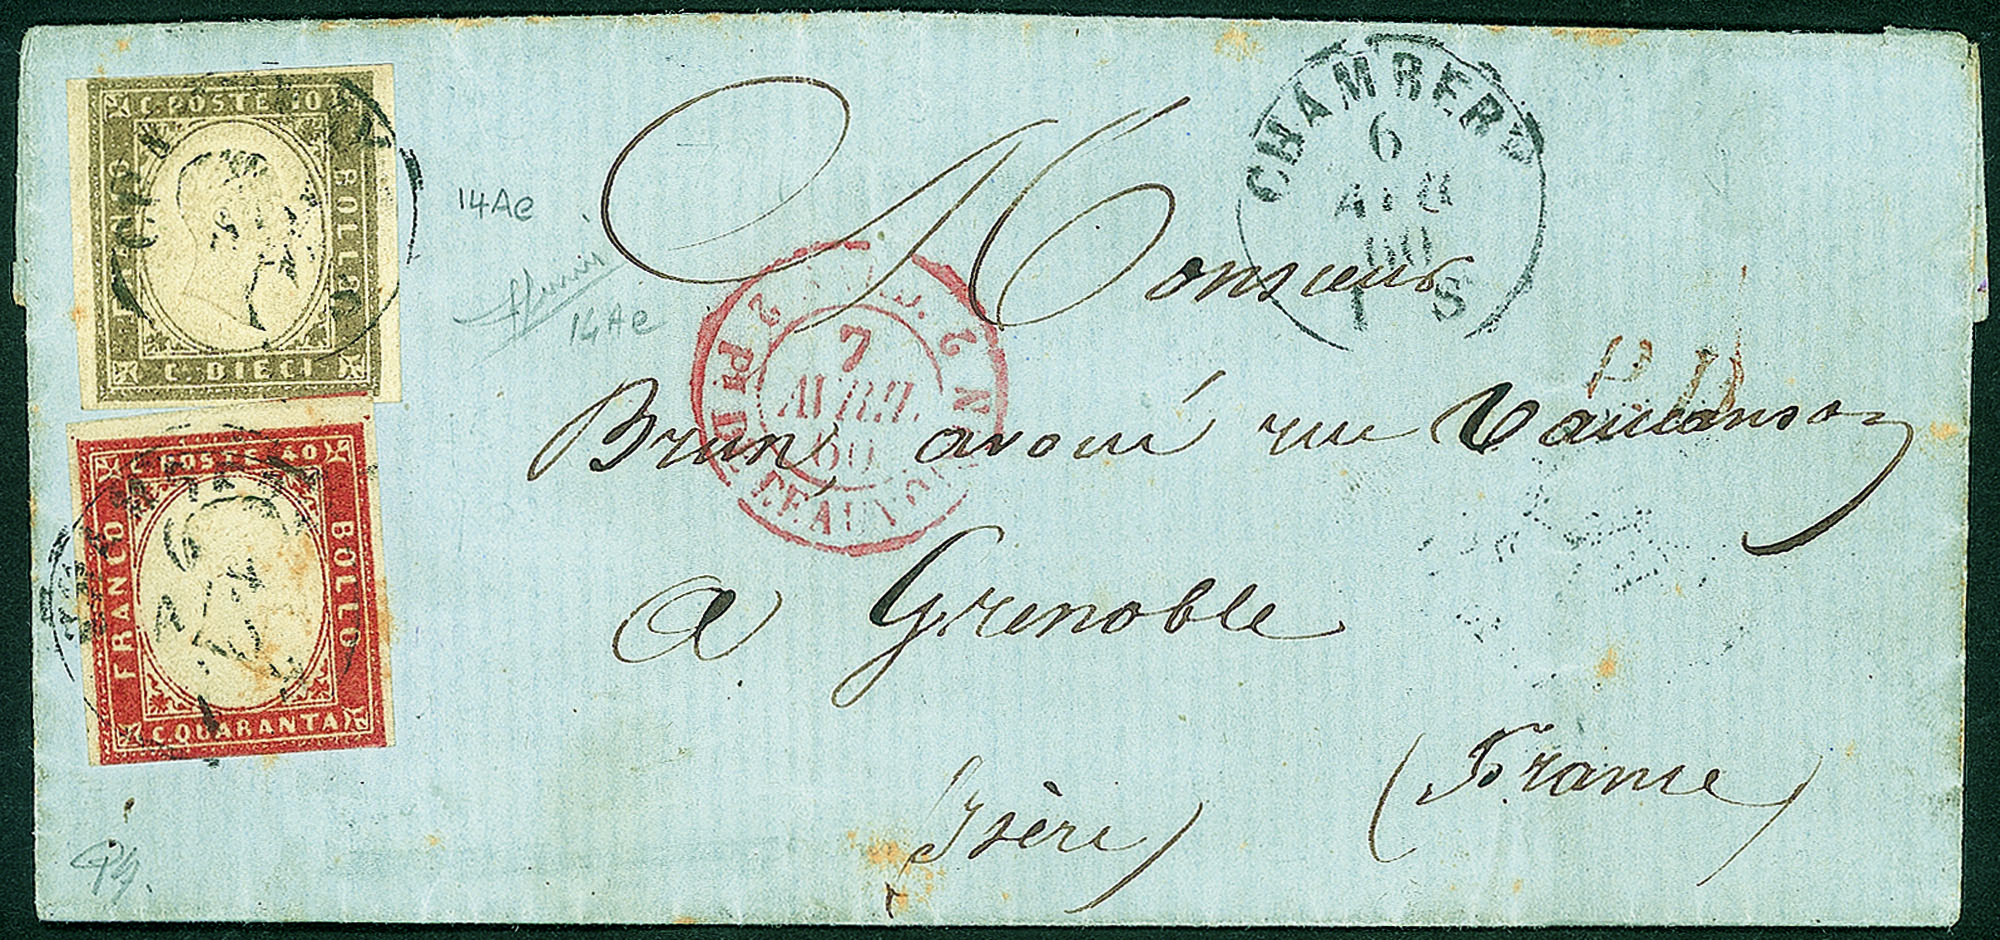 C. POSTE 10
BOLLO
C. DIECI
C. POSTE 40
FRANCO
BOLLO
C. QUARANTA
6
14Ae
14Ae
CHAMBERY
6
APR
60
1 S
7
AVRIL
60
PT DE BEAUVOISIN
P.D.
Monsieur
Brun, avoué rue Vaucanson
a Grenoble
Isère)
(France)